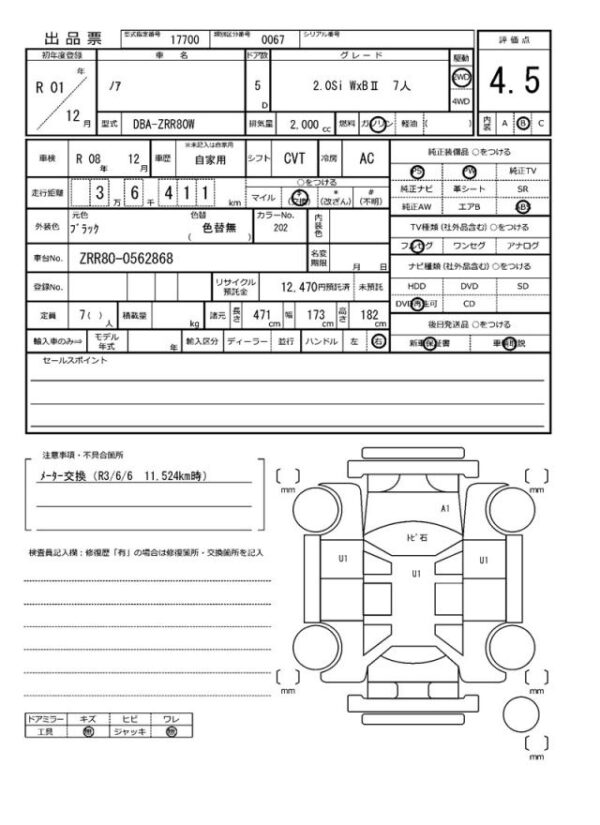 出品票 型式指定番号 17700 類別区分番号 0067 シリアル番号
評価点
初年度登録 車名 ドア数 グレード 駆動
R 01 年 ノア 5 D 2.0Si WxBⅡ 7人 2WD 4WD
4.5
12 月 型式 DBA-ZRR80W 排気量 2,000 cc 燃料 ガソリン 軽油 ( )
内装 A B C
車検 R 08 年 12 月 車歴 ※未記入は自家用 自家用 シフト CVT 冷房 AC
純正装備品 ○をつける
PS PW 純正TV
純正ナビ 革シート SR
純正AW エアB ABS
走行距離 3 万 6 千 4 1 1 km ○をつける
マイル $ (交換) * (改ざん) # (不明)
外装色 元色 ブラック 色替 ( 色替無 ) カラーNo. 202 内装色
TV種類 (社外品含む) ○をつける
フルセグ ワンセグ アナログ
車台No. ZRR80-0562868 名変期限 月 日
ナビ種類 (社外品含む) ○をつける
HDD DVD SD
DVD再生可 CD
登録No. リサイクル預託金 12,470円預託済 未預託
定員 7( ) 人 積載量 kg 諸元 長さ 471 cm 幅 173 cm 高さ 182 cm
後日発送品 ○をつける
新車保証書 車輌取説
輸入車のみ⇒ モデル年式 年 輸入区分 ディーラー 並行 ハンドル 左 右
セールスポイント
注意事項・不具合箇所
メーター交換 (R3/6/6 11,524km時)
検査員記入欄：修復歴「有」の場合は修復箇所・交換箇所を記入
mm
mm
A1
トビ石
U1
U1
U1
mm
mm
mm
ドアミラー キズ ヒビ ワレ
工具 無 ジャッキ 無